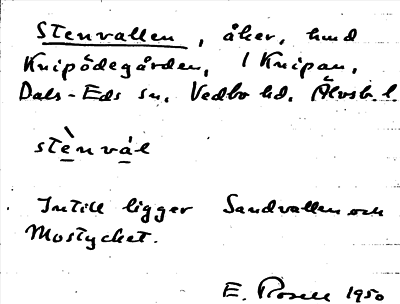 Stenvallen, åker, hmd
Knipödegården, 1 Knipan,
Dals-Eds sn, Vedbo hd, Älvsb. l.
stènvál
Intill ligger Sandvallen och
Mostycket.
E. Rosell 1950